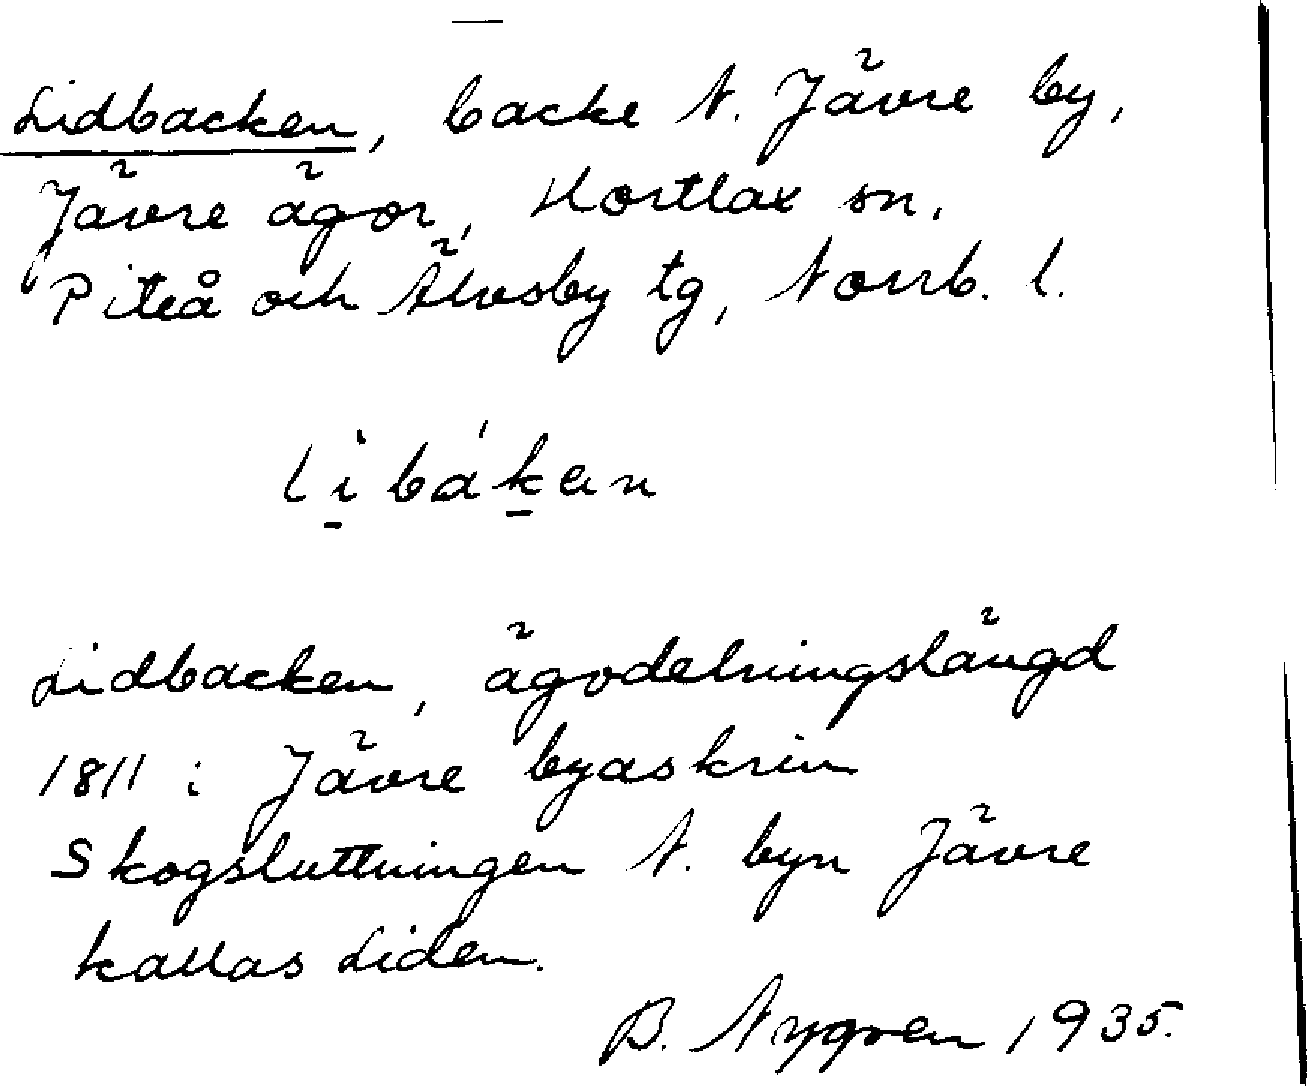 Lidbacken, backe N. Jävre by,
Jävre ägor, Hortlax sn,
Piteå och Älvsby tg, Norrb. l.
li̱bák̠en
Lidbacken, ägodelningslängd
1811 i Jävre byaskrin
Skogsluttningen N. byn Jävre
kallas Liden.
B. Nygren 1935.